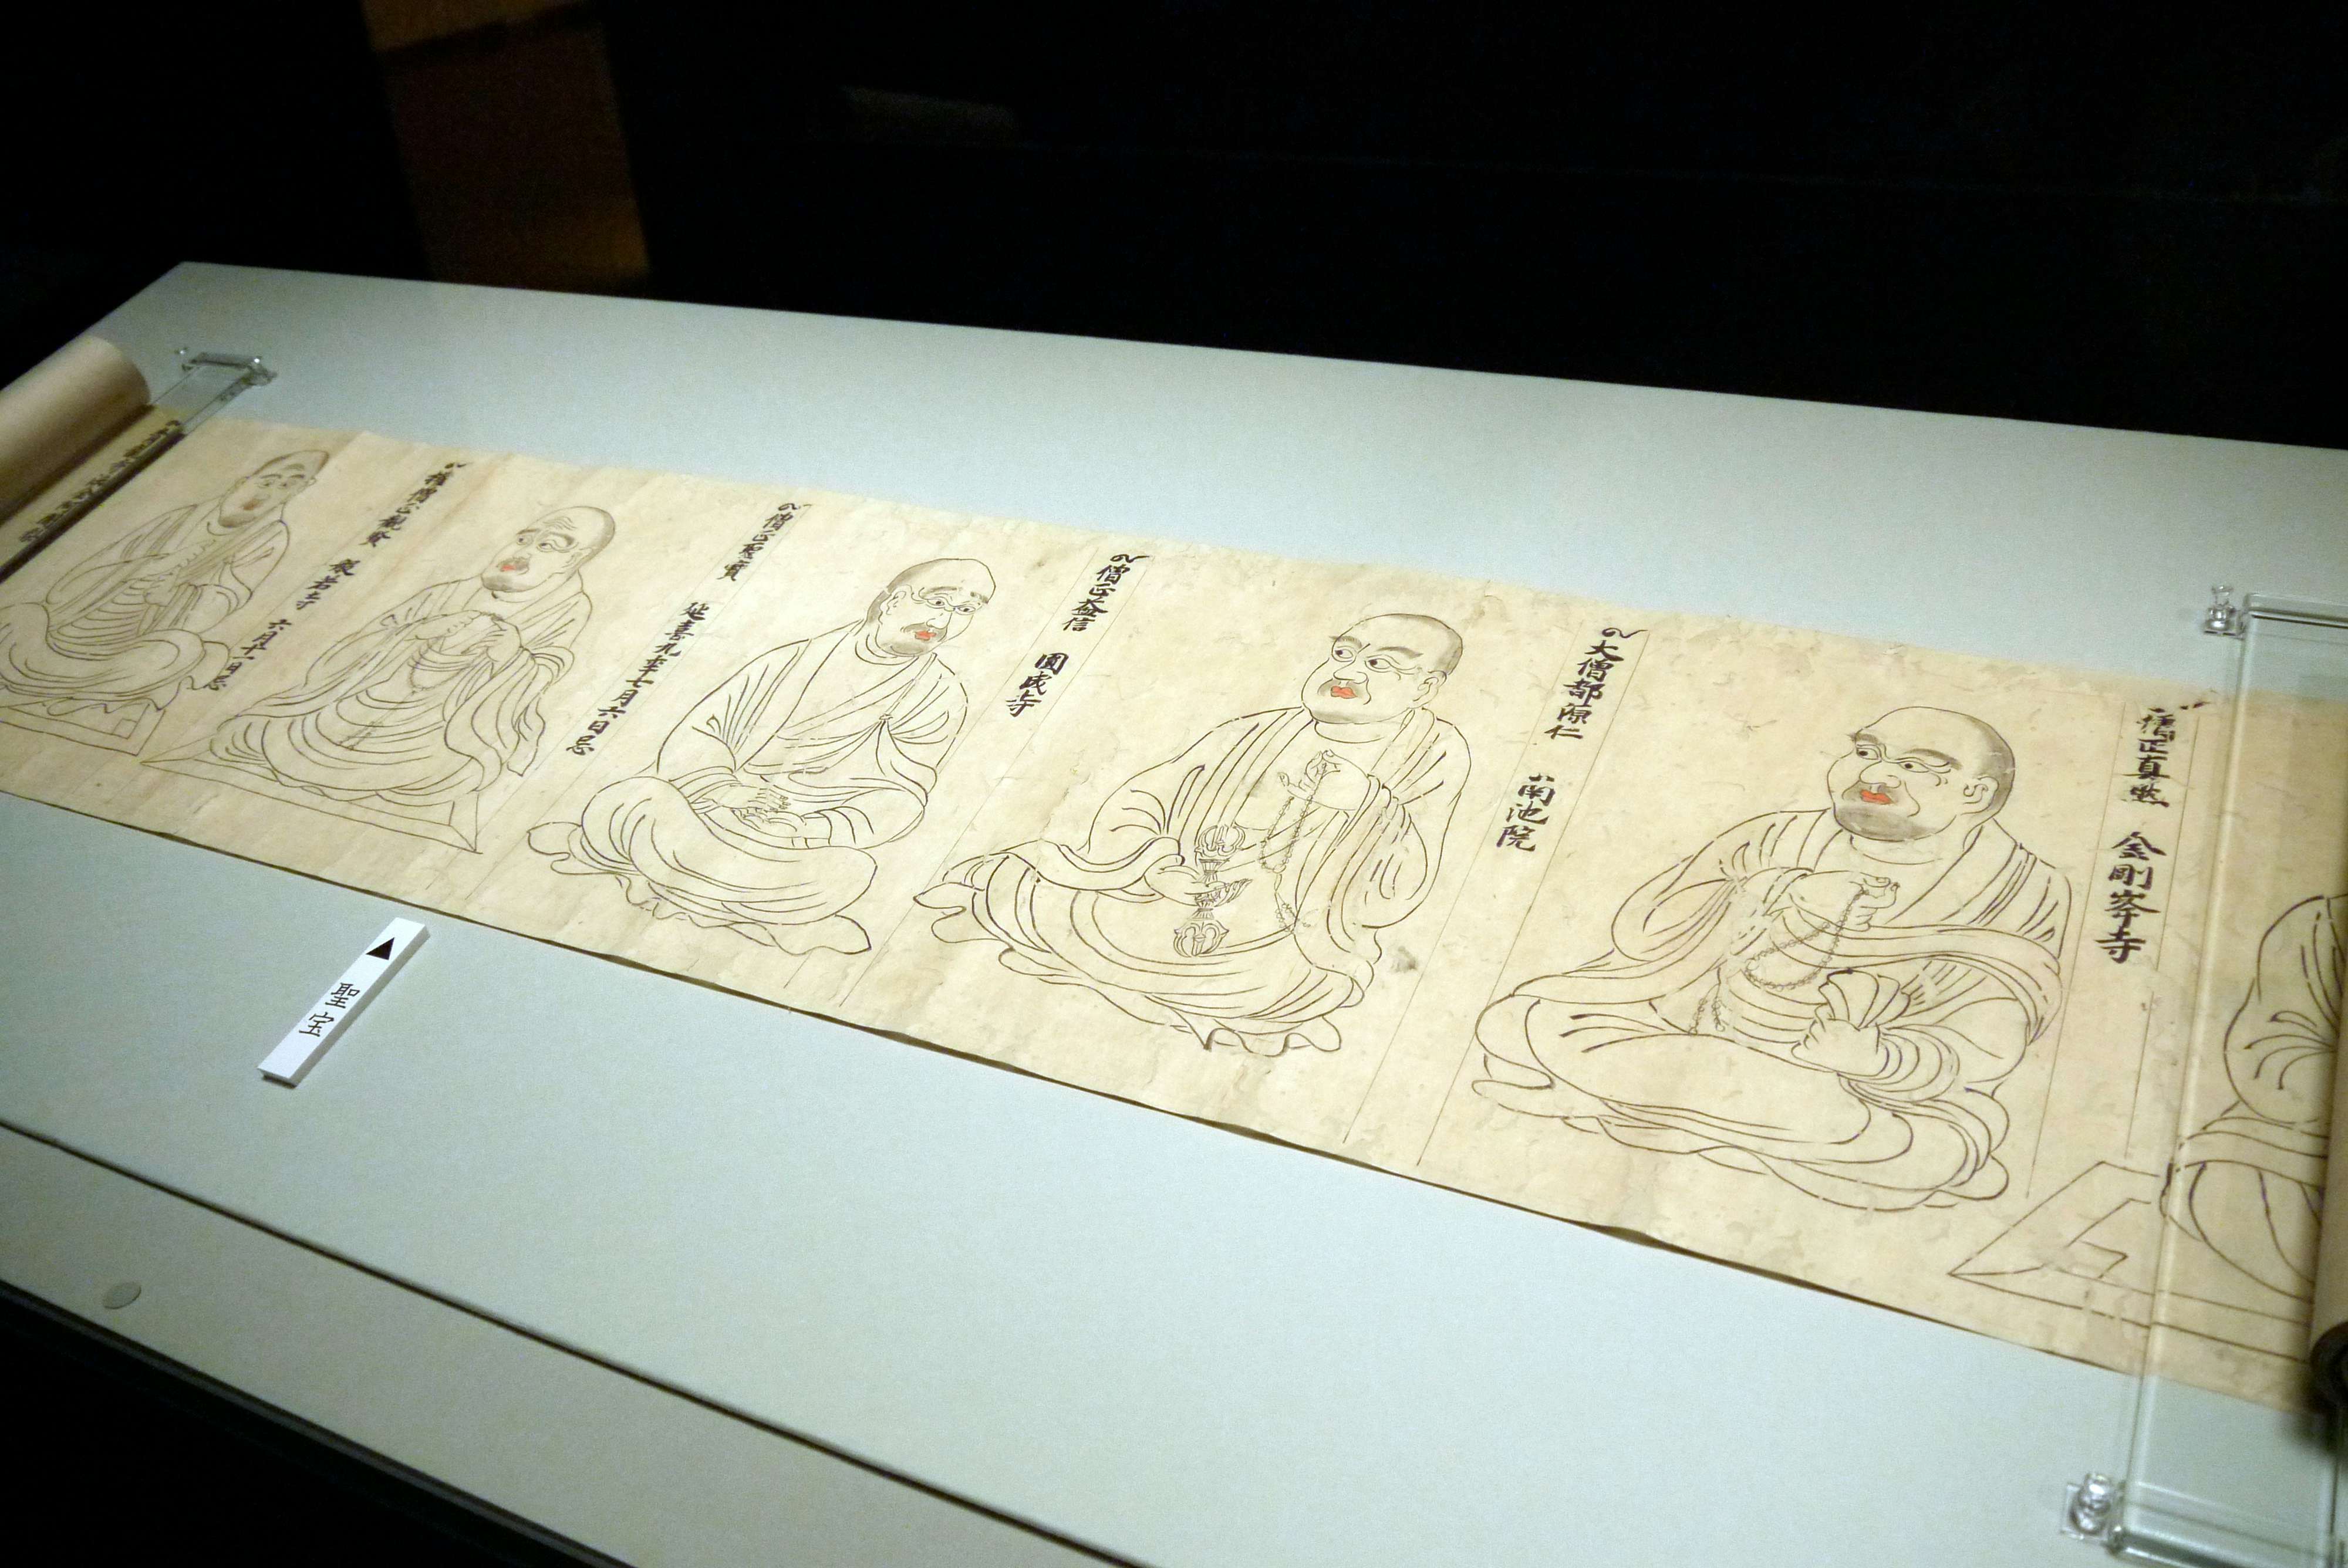 僧正真然 金剛峯寺
大僧都源仁 南池院
僧正益信 圓成寺
僧正聖寳 延喜九年七月六日忌
権僧正観賢 般若寺 六月十一日忌
聖宝